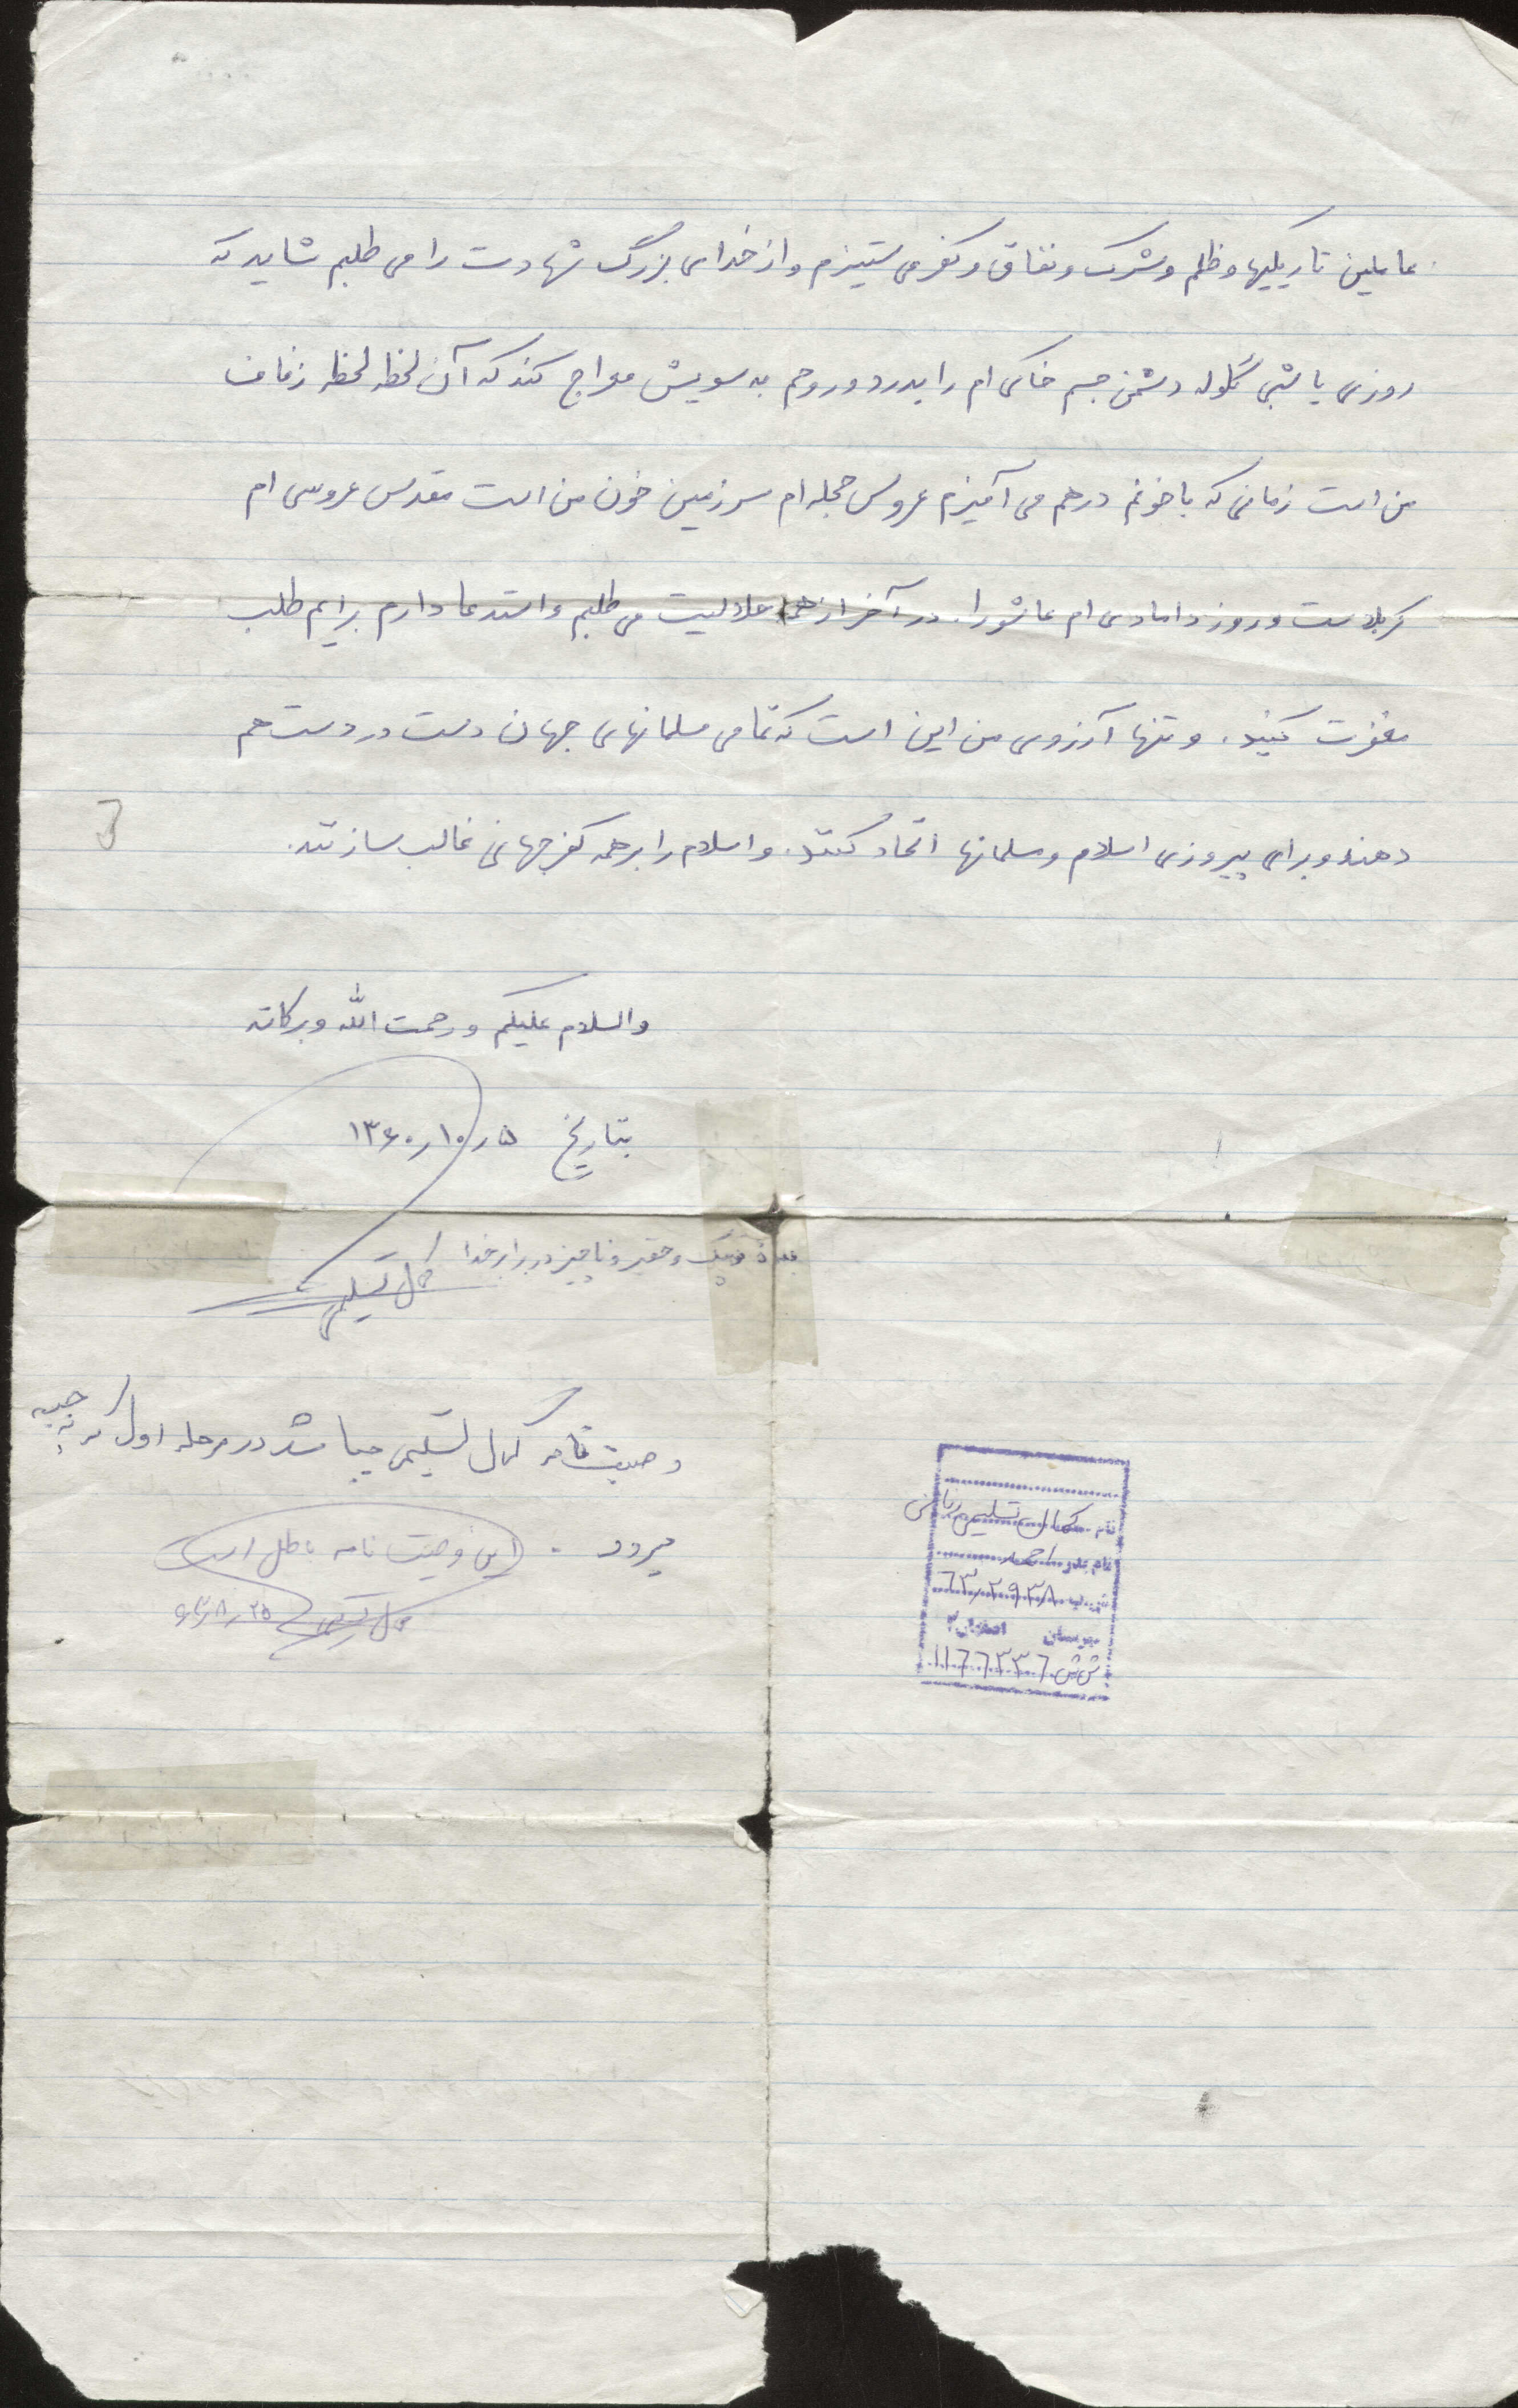 عاملین تاریکیها و ظلم و شرک و نفاق و کفر می ستیزم و از خدای بزرگ شهادت را می طلبم شاید که
روزی یا شبی گلوله دشمن جسم خاکی ام را بدرد و روحم به سویش معراج کند که آن لحظه لحظه زفاف
من است زمانی که با خونم درهم می آمیزم عروس حجله ام سرزمین خون من است مقدس عروسی ام
کربلاست و روز دامادی ام عاشورا. در آخر از همه حلالیت می طلبم و استدعا دارم برایم طلب
مغفرت کنید. و تنها آرزوی من این است که تمامی مسلمانهای جهان دست در دست هم
دهند و برای پیروزی اسلام و مسلمانها اتحاد کنند. و اسلام را بر همه کفر جهانی غالب سازند.
والسلام علیکم و رحمت الله و برکاته
بتاریخ ۵ر۱۰ر۱۳۶۰
و حقیر و ناچیز در برابر خدا
کمال تسلیمی
وصیت نامه کمال تسلیمی میباشد در مرحله اول که به جبهه
میرود.
این وصیت نامه باطل است
۲۵ر۸ر۶۳
نام کمال تسلیمی ریاضی
نام پدر احمد
۶۳٫۲۹۳۸
اصفهان ۲
ش ش ۱۱۶۶۳۳۶